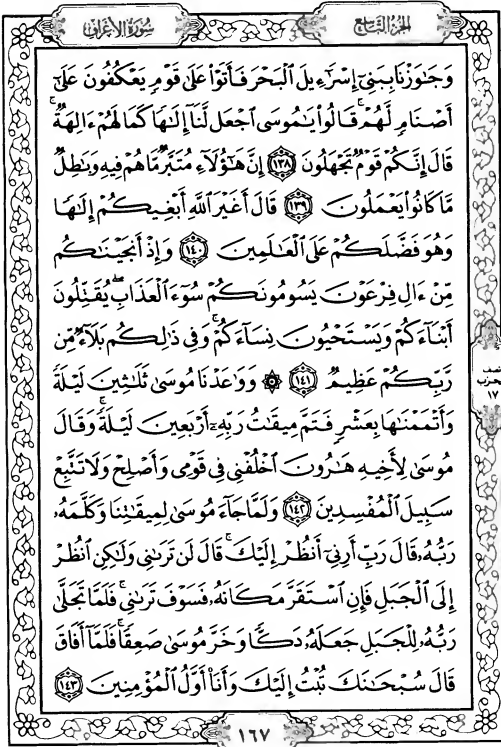 الجزء التاسع
سورة الأعراف
وَجَٰوَزْنَا بِبَنِىٓ إِسْرَٰٓءِيلَ ٱلْبَحْرَ فَأَتَوْا۟ عَلَىٰ قَوْمٍ يَعْكُفُونَ عَلَىٰٓ
أَصْنَامٍ لَّهُمْ ۚ قَالُوا۟ يَٰمُوسَى ٱجْعَل لَّنَآ إِلَٰهًا كَمَا لَهُمْ ءَالِهَةٌ ۚ
قَالَ إِنَّكُمْ قَوْمٌ تَجْهَلُونَ ١٣٨ إِنَّ هَٰٓؤُلَآءِ مُتَبَّرٌ مَّا هُمْ فِيهِ وَبَٰطِلٌ
مَّا كَانُوا۟ يَعْمَلُونَ ١٣٩ قَالَ أَغَيْرَ ٱللَّهِ أَبْغِيكُمْ إِلَٰهًا
وَهُوَ فَضَّلَكُمْ عَلَى ٱلْعَٰلَمِينَ ١٤٠ وَإِذْ أَنجَيْنَٰكُم
مِّنْ ءَالِ فِرْعَوْنَ يَسُومُونَكُمْ سُوٓءَ ٱلْعَذَابِ ۖ يُقَتِّلُونَ
أَبْنَآءَكُمْ وَيَسْتَحْيُونَ نِسَآءَكُمْ ۚ وَفِى ذَٰلِكُم بَلَآءٌ مِّن
رَّبِّكُمْ عَظِيمٌ ١٤١ ۞ وَوَٰعَدْنَا مُوسَىٰ ثَلَٰثِينَ لَيْلَةً
وَأَتْمَمْنَٰهَا بِعَشْرٍ فَتَمَّ مِيقَٰتُ رَبِّهِۦٓ أَرْبَعِينَ لَيْلَةً ۚ وَقَالَ
مُوسَىٰ لِأَخِيهِ هَٰرُونَ ٱخْلُفْنِى فِى قَوْمِى وَأَصْلِحْ وَلَا تَتَّبِعْ
سَبِيلَ ٱلْمُفْسِدِينَ ١٤٢ وَلَمَّا جَآءَ مُوسَىٰ لِمِيقَٰتِنَا وَكَلَّمَهُۥ
رَبُّهُۥ قَالَ رَبِّ أَرِنِىٓ أَنظُرْ إِلَيْكَ ۚ قَالَ لَن تَرَىٰنِى وَلَٰكِنِ ٱنظُرْ
إِلَى ٱلْجَبَلِ فَإِنِ ٱسْتَقَرَّ مَكَانَهُۥ فَسَوْفَ تَرَىٰنِى ۚ فَلَمَّا تَجَلَّىٰ
رَبُّهُۥ لِلْجَبَلِ جَعَلَهُۥ دَكًّا وَخَرَّ مُوسَىٰ صَعِقًا ۚ فَلَمَّآ أَفَاقَ
قَالَ سُبْحَٰنَكَ تُبْتُ إِلَيْكَ وَأَنَا۠ أَوَّلُ ٱلْمُؤْمِنِينَ ١٤٣
نصف
الحزب
١٧
١٦٧